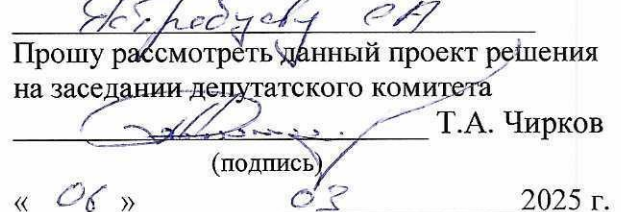 Ястребцеву СА
Прошу рассмотреть данный проект решения
на заседании депутатского комитета
Т.А. Чирков
(подпись)
« 06 » 03 2025 г.